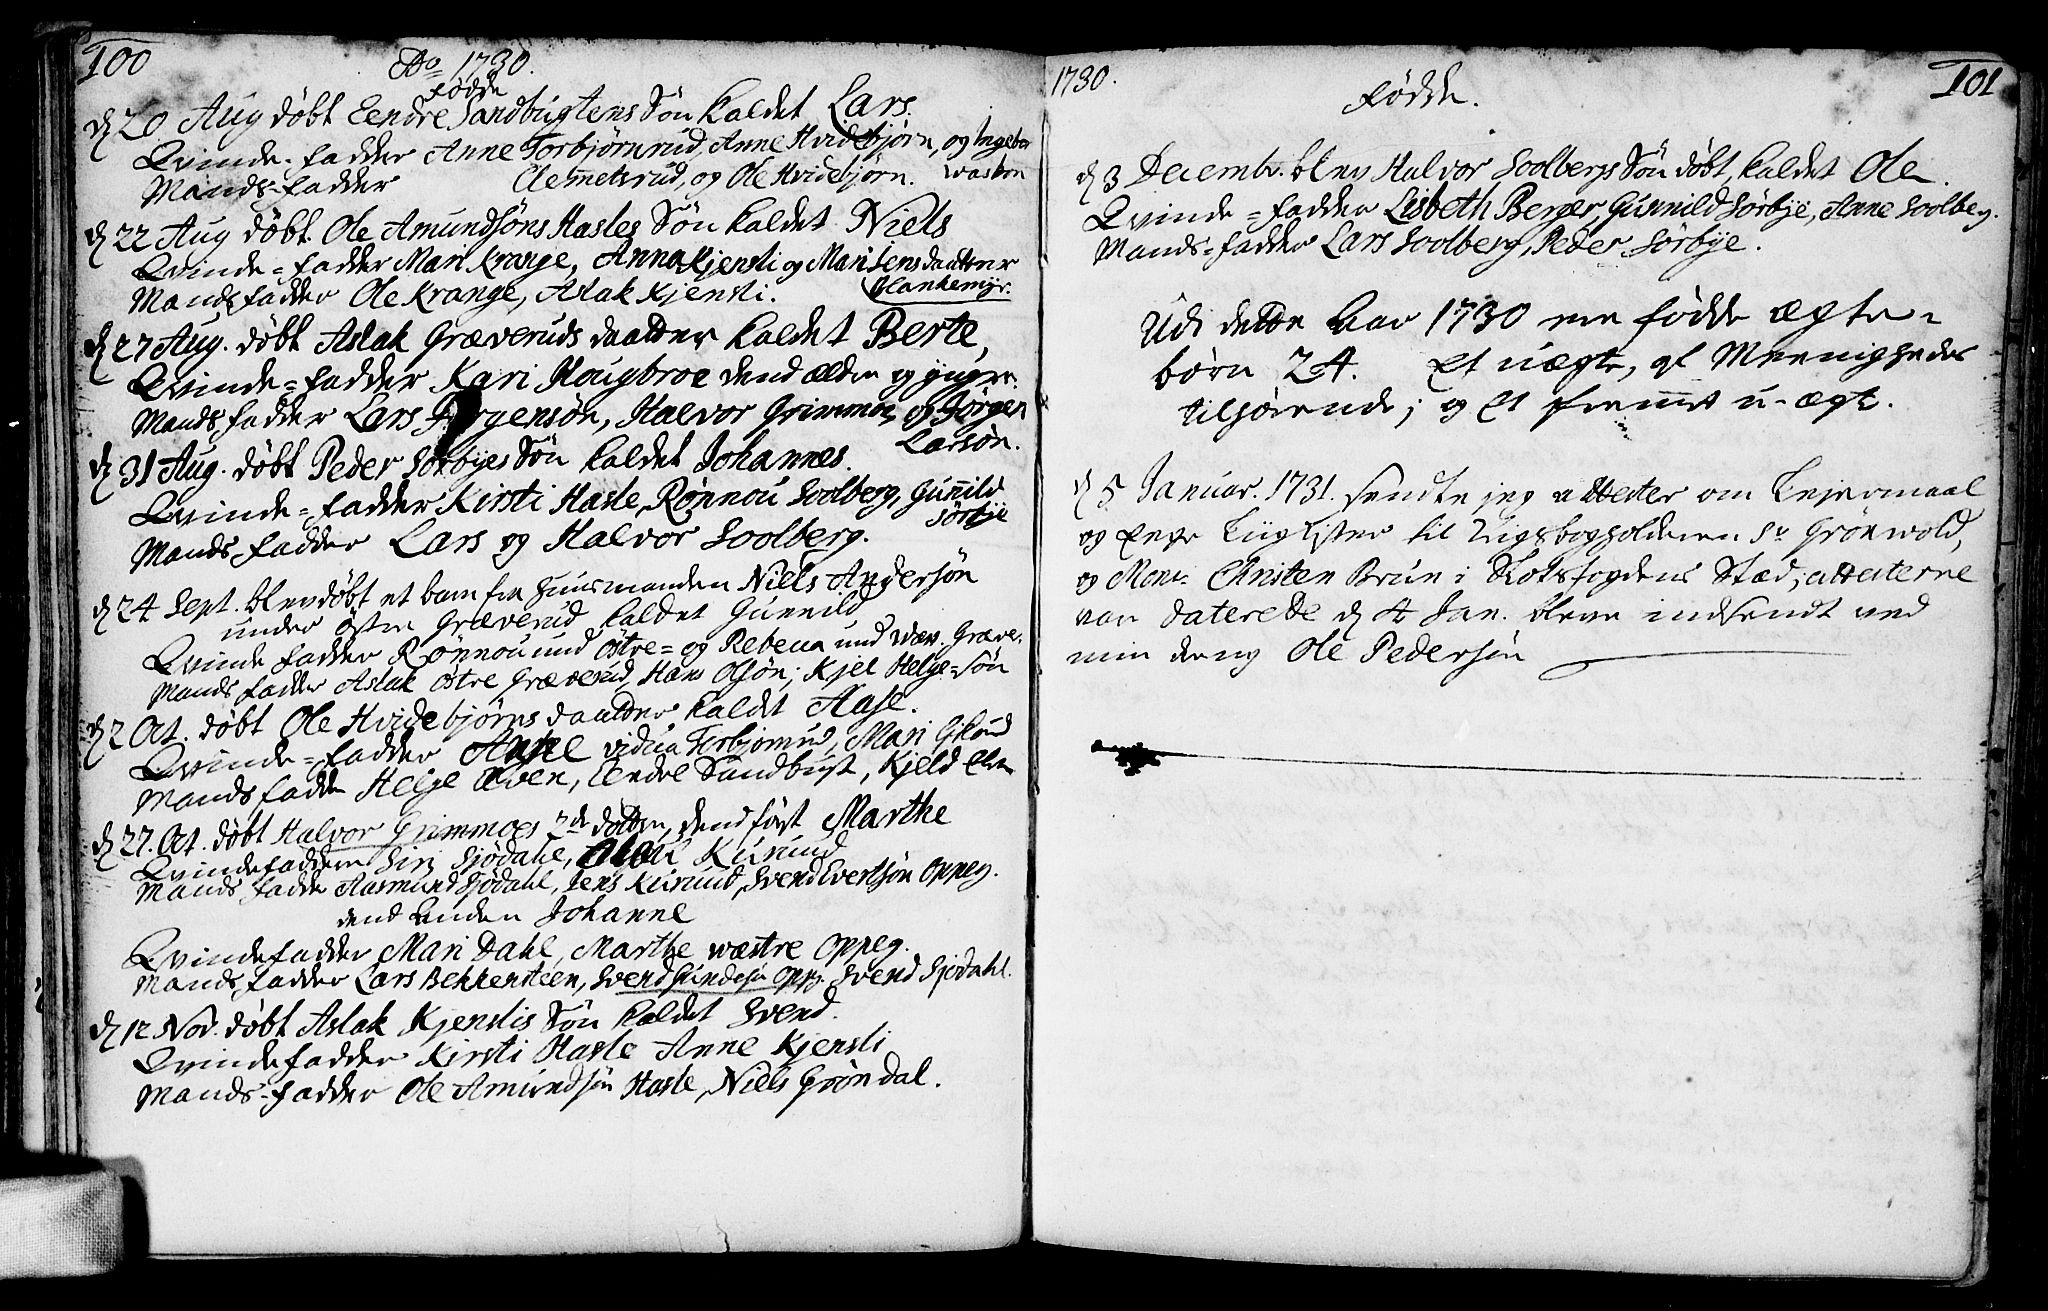 100
Ao 1730.
Fødde
d 20 Aug døbt Eendre Sandbugtens Søn kaldet Lars.
Qvinde-fadder Anne Torbjørnrud, Anne Hvidebjørn, og Ingebor
Mands-fadder Clemmetsrud, og Ole Hvidebjørn.
d 22 Aug døbt Ole Amundsøns Hasles Søn kaldet Niels
Qvinde=fadder Mari Krange, Anna Kjensli og Mari Jensdaatter
Mands fadder Ole Krange, Aslak Kjensli. Blankemyr.
d 27 Aug. døbt Aslak Græveruds daatter kaldet Berte,
Qvinde=fadder Kari Hougbroe dend ældre og yngre.
Mands fadder Lars Jørgensøn, Halvor Grimmoe, og Jørgen
Larsøn.
d 31 Aug. døbt Peder Sørbyes Søn kaldet Johannes.
Qvinde=fadder Kirsti Hasle, Rønnou Soolberg, Gunnild
Sørbye
Mands fadder Lars og Halvor Soolberg.
d 24 Sept. blev døbt et barn fra Huusmanden Niels Andersøn
under østre Græverud kaldet Gunnild
Qvinde fadder Rønnou und østre= og Rebecca und wæs. Græve.
Mands fadder Aslak østre Græverud, Hans Olsøn; Kjel Helge=søn
d 2 Oct. døbt Ole Hvidebjørns daatter kaldet Aase.
Qvinde=fadder Anne vidua Torbjørnrud, Mari
Mands fadder Helge Elven, Eendre Sandbugt, Kjeld
d 27. Oct. døbt Halvor Grimmoes 2de døttre, dend først Marthe
Qvindefaddere Siri Sjødahl, Kurud
Mands fadder Aasmund Sjødahl, Jens Kurud, Svend Evertsøn Oppeg.
dend anden Johanne
Qvindefadder Mari Dahl, Marthe wæstre Oppeg.
Mands fadder Lars Bekkensteen, Svend Gundesøn Oppg. Svend Sjødahl.
d 12 Nov. døbt Aslak Kjenslis Søn kaldet Svend.
Qvindefadder Kirsti Hasle Anne Kjensli
Mands-fadder Ole Amundsøn Hasle, Niels Grøndal.
1730. Fødde. 101
d 3 Decembr. blev Halvor Soolbergs Søn døbt, kaldet Ole.
Qvinde=fadder Lisbeth Berger, Gunnild Sørbye, Anne Soolbeg.
Mands=fadder Lars Soolberg, Peder Sørbye.
Udi dette Aar 1730 ere fødde ægte=
børn 24. Et uægte, af Meenigheden
tilhørende; og et fremmet u-ægte.
d 5 Januar. 1731. sendte jeg attester om Leyermaal
og til Sr Grönwold,
og Monr. Christen Brun i Slotsfogdens Stæd; attesterne
var daterede d 4 Jan. bleve indsendt ved
min dreng Ole Pedersøn